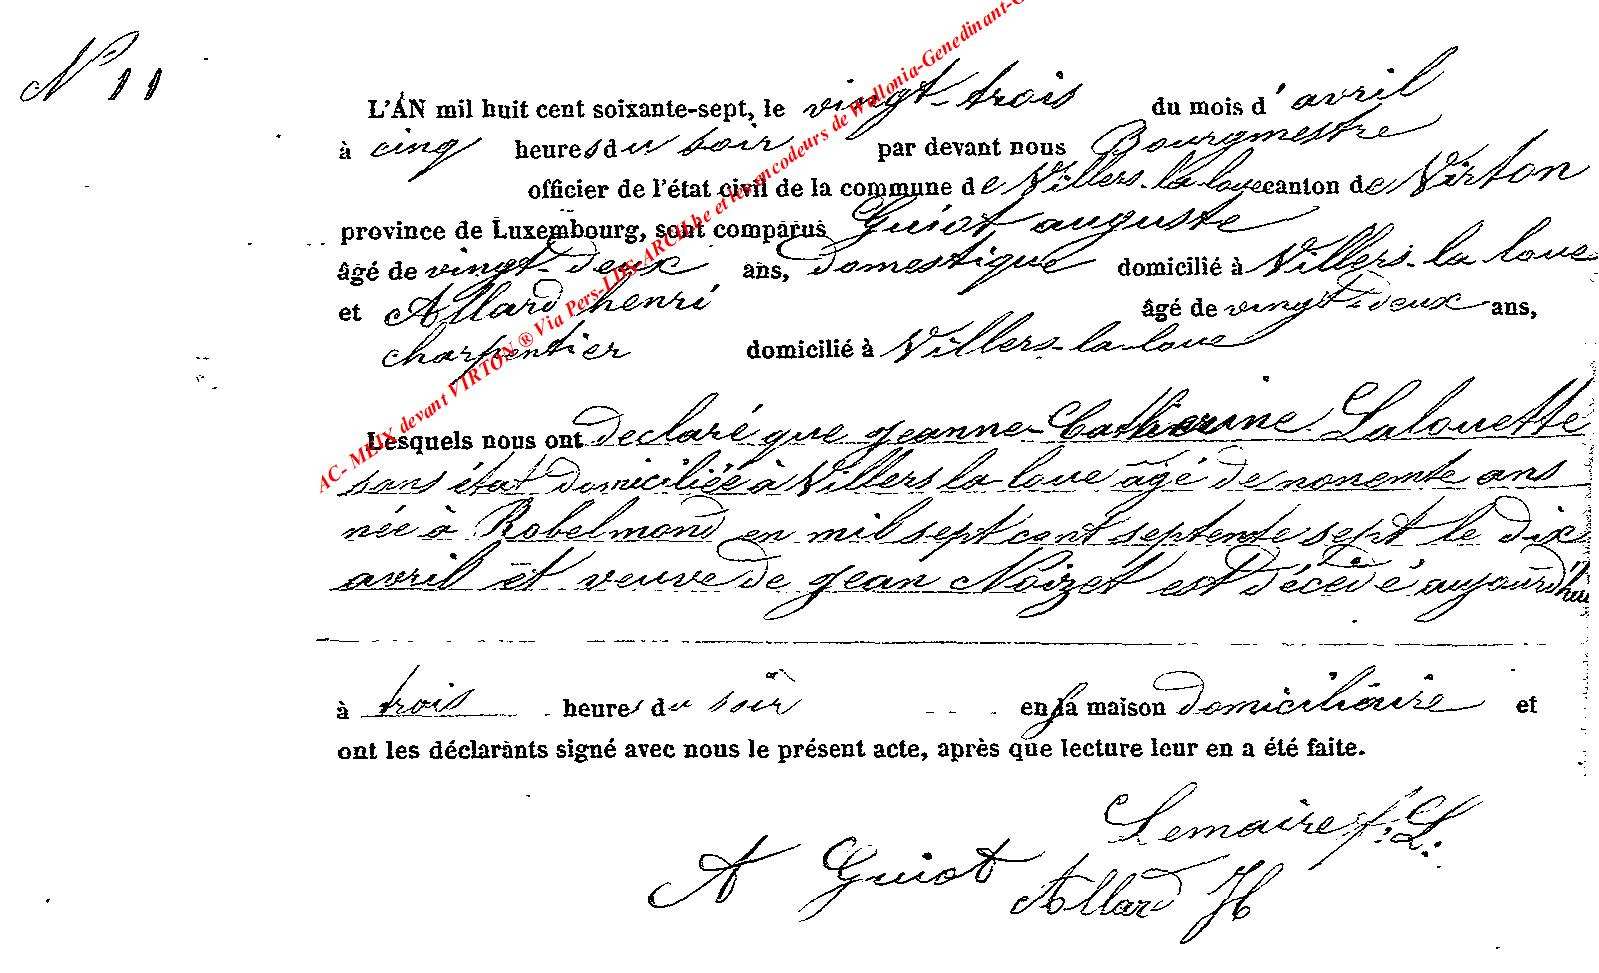 N° 11
L'AN mil huit cent soixante-sept, le vingt-trois du mois d'avril
à cinq heures du soir par devant nous Bourgmestre
officier de l'état civil de la commune de Villers-la-loue canton de Virton
province de Luxembourg, sont comparus Guiot auguste
âgé de vingt-deux ans, domestique domicilié à Villers-la loue
et Allard henri âgé de vingt-deux ans,
charpentier domicilié à Villers-la-loue
Lesquels nous ont declaré que jeanne-Catherine Lalouette
sans état domiciliée à Villers la-loue âgé de nonente ans
née à Robelmond en mil sept cent septente sept le dix
avril et veuve de jean Noizet est décédé aujourd'hui
à trois heures du soir en sa maison domiciliaire et
ont les déclarants signé avec nous le présent acte, après que lecture leur en a été faite.
Lemaire f: L:
A Guiot Allard H
AC- MEIX devant VIRTON ® Via Pers-LDS-ARCH.be et les encodeurs de Wallonia-Genedinant-G